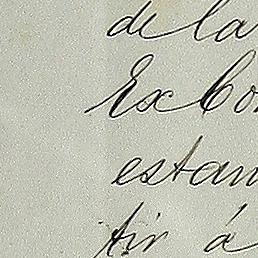 de la
Ex
estan
tir á